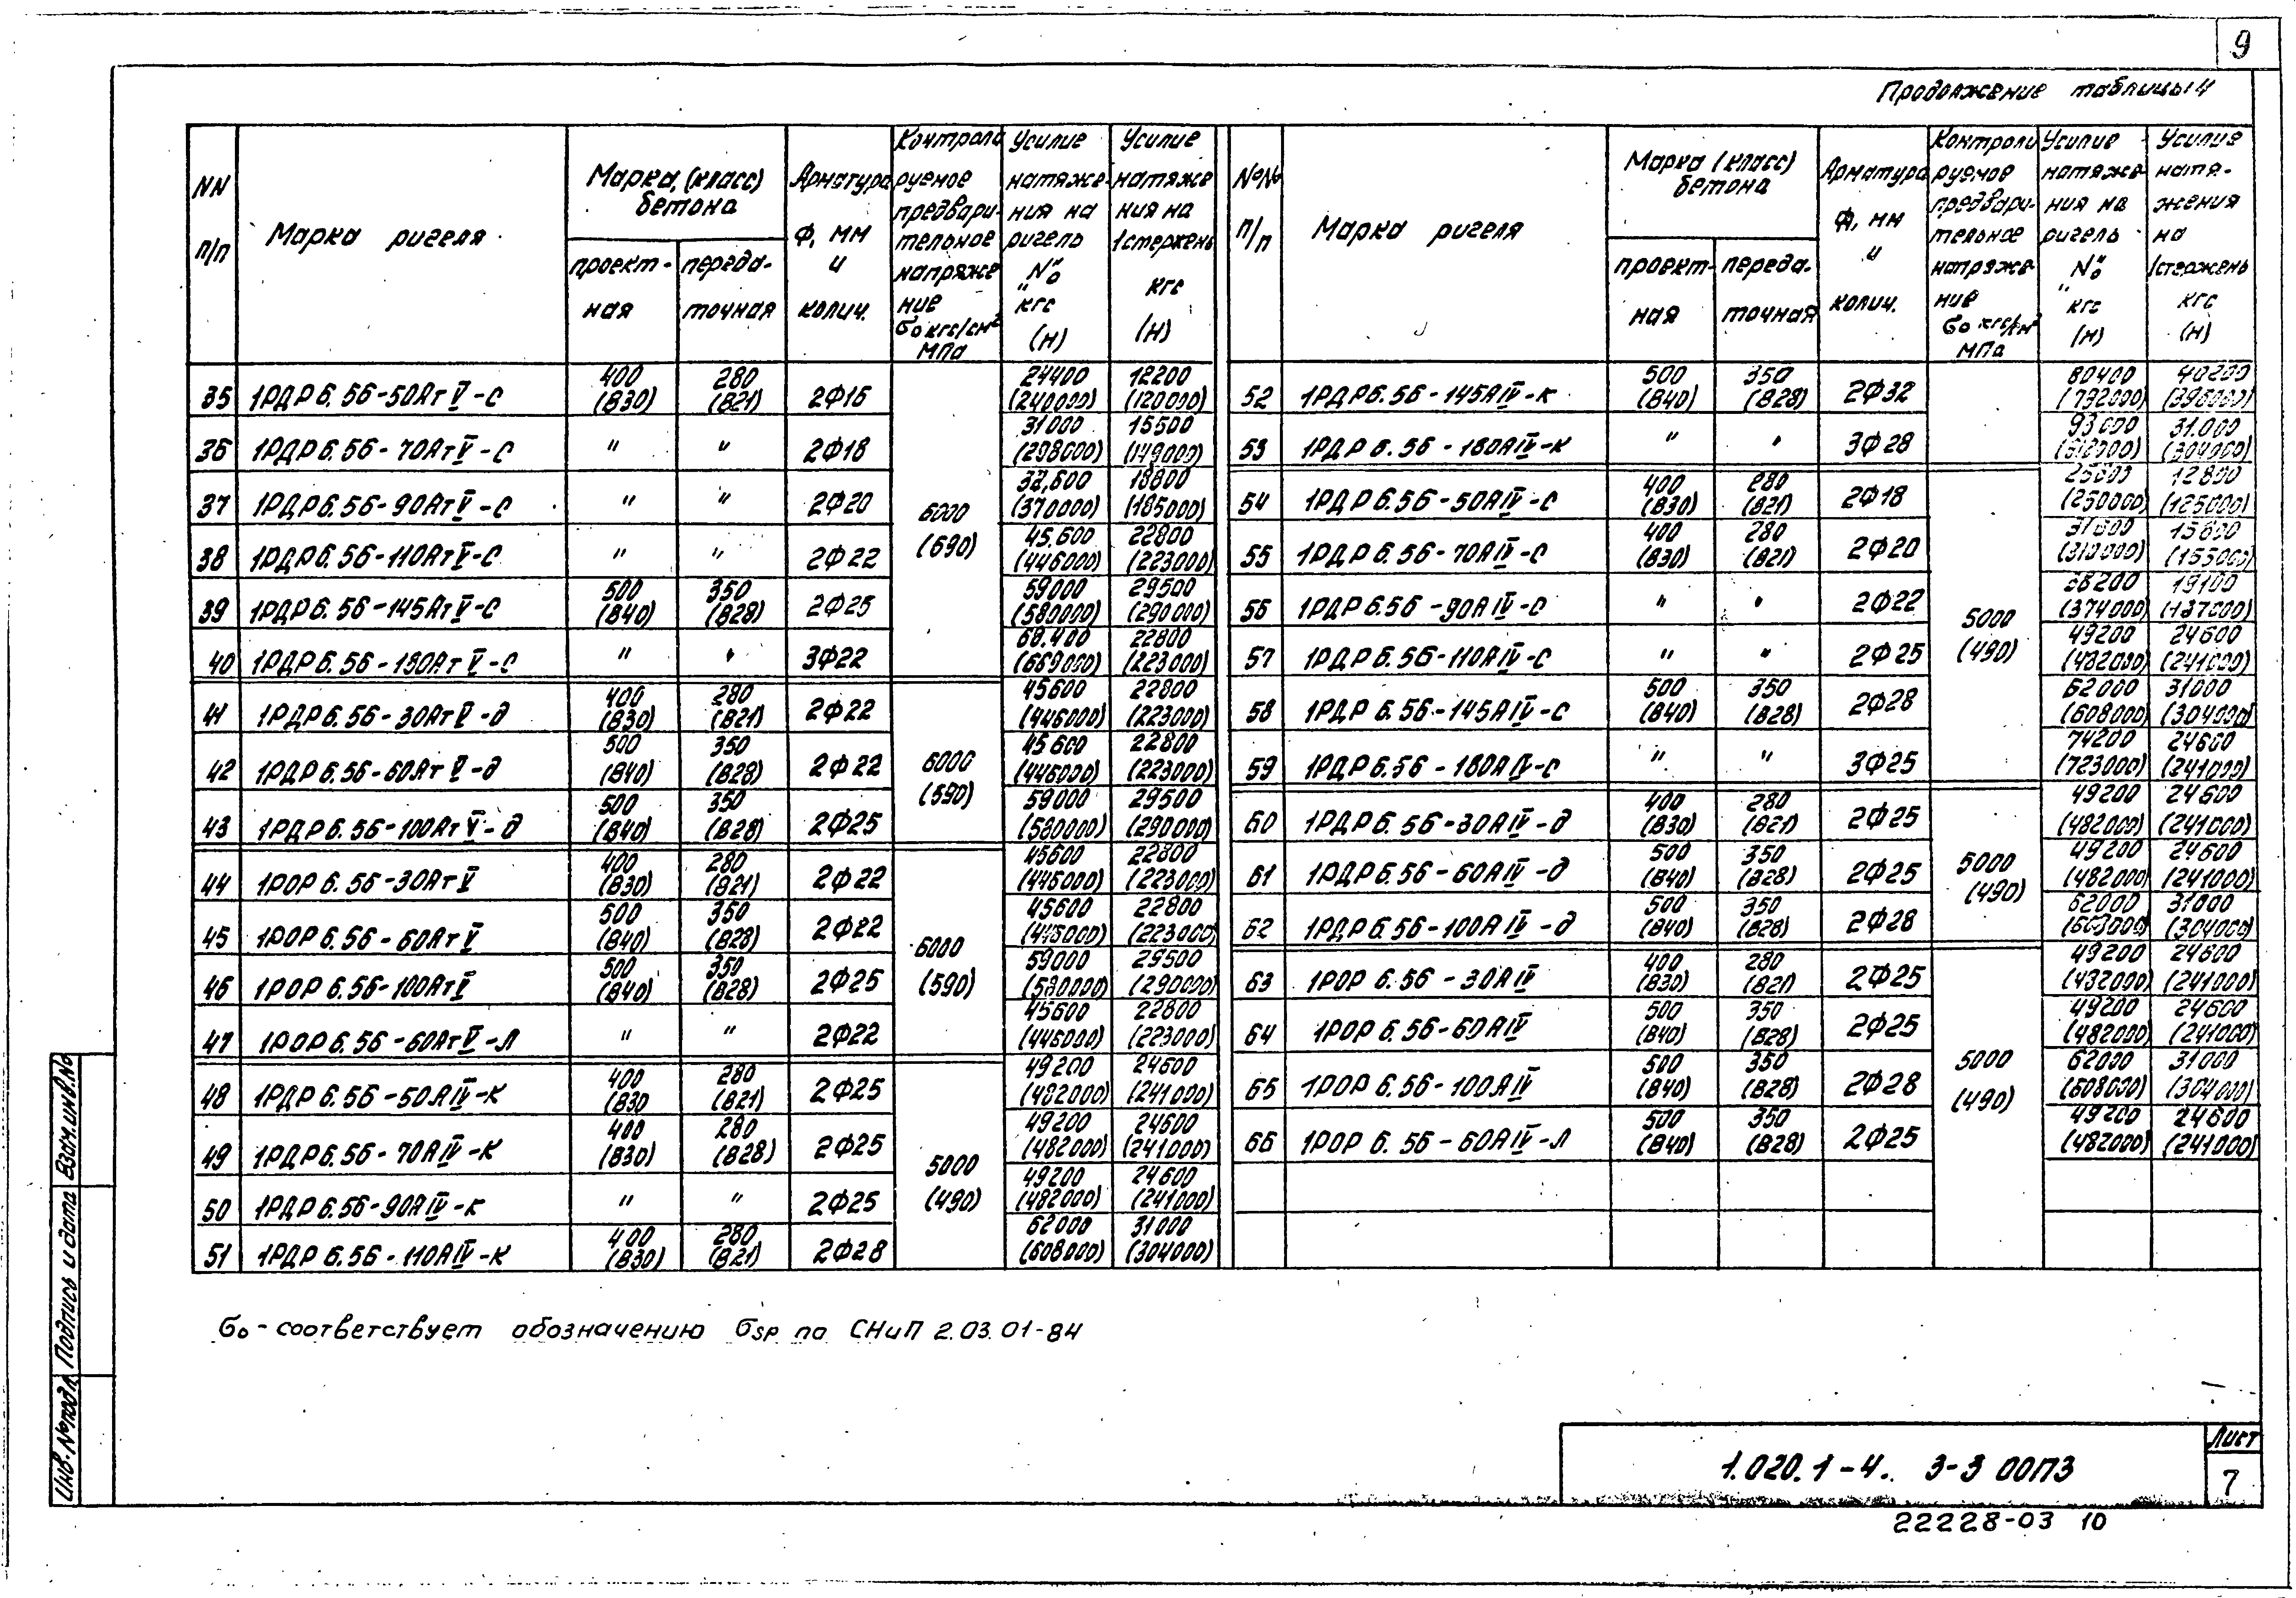 9
Продолжение таблицы 4
NN п/п | Марка ригеля | Марка, (класс) бетона: проектная | передаточная | Арматура Ф, мм и колич. | Контролируемое предварительное напряжение σо кгс/см² МПа | Усилие натяжения на ригель "No" кгс (н) | Усилие натяжения на 1стержень кгс (н)
35 | 1РДР 6.56-50АтV-С | 400 (В30) | 280 (В21) | 2Ф16 | 6000 (690) | 24400 (240000) | 12200 (120000)
36 | 1РДР 6.56-70АтV-С | " | " | 2Ф18 | 31000 (298000) | 15500 (149000)
37 | 1РДР 6.56-90АтV-С | " | " | 2Ф20 | (370000) | 18800 (185000)
38 | 1РДР 6.56-110АтV-С | " | " | 2Ф22 | 45.600 (446000) | 22800 (223000)
39 | 1РДР 6.56-145АтV-С | 500 (В40) | 350 (В28) | 2Ф25 | 59000 (580000) | 29500 (290000)
40 | 1РДР 6.56-180АтV-С | " | " | 3Ф22 | 68.400 (669000) | 22800 (223000)
41 | 1РДР 6.56-30АтV-д | 400 (В30) | 280 (В21) | 2Ф22 | 6000 (590) | 45600 (446000) | 22800 (223000)
42 | 1РДР 6.56-60АтV-д | 500 (В40) | 350 (В28) | 2Ф22 | 45600 (446000) | 22800 (223000)
43 | 1РДР 6.56-100АтV-д | 500 (В40) | 350 (В28) | 2Ф25 | 59000 (580000) | 29500 (290000)
44 | 1РОР 6.56-30АтV | 400 (В30) | 280 (В21) | 2Ф22 | 6000 (590) | 45600 (446000) | 22800 (223000)
45 | 1РОР 6.56-60АтV | 500 (В40) | 350 (В28) | 2Ф22 | 45600 (446000) | 22800 (223000)
46 | 1РОР 6.56-100АтV | 500 (В40) | 350 (В28) | 2Ф25 | 59000 (580000) | 29500 (290000)
47 | 1РОР 6.56-60АтV-Л | " | " | 2Ф22 | 45600 (446000) | 22800 (223000)
48 | 1РДР 6.56-50АIV-К | 400 (В30 | 280 (В21) | 2Ф25 | 5000 (490) | 49200 (482000) | 24600 (241000)
49 | 1РДР 6.56-70АIV-К | 400 (В30) | 280 (В28) | 2Ф25 | 49200 (482000) | 24600 (241000)
50 | 1РДР 6.56-90АIV-К | " | " | 2Ф25 | 49200 (482000) | 24600 (241000)
51 | 1РДР 6.56-110АIV-К | 400 (В30) | 280 (В21) | 2Ф28 | 62000 (608000) | 31000 (304000)
№№ п/п | Марка ригеля | Марка (класс) бетона: проектная | передаточная | Арматура Ф, мм и колич. | Контролируемое предварительное напряжение σо кгс/см² МПа | Усилие натяжения на ригель "No" кгс (н) | Усилие натяжения на 1стержень кгс (н)
52 | 1РДР 6.56-145АIV-К | 500 (В40) | 350 (В28) | 2Ф32 | 80400 (792000) | 40200 (396000)
53 | 1РДР 6.56-180АIV-К | " | " | 3Ф28 | 93000 | 31.000 (304000)
54 | 1РДР 6.56-50АIV-С | 400 (В30) | 280 (В21) | 2Ф18 | 5000 (490) | 25600 (250000) | 12800 (125000)
55 | 1РДР 6.56-70АIV-С | 400 (В30) | 280 (В21) | 2Ф20 | (310000) | (155000)
56 | 1РДР 6.56-90АIV-С | " | " | 2Ф22 | 38200 (374000) | 19100 (187000)
57 | 1РДР 6.56-110АIV-С | " | " | 2Ф25 | 49200 (482000) | 24600 (241000)
58 | 1РДР 6.56-145АIV-С | 500 (В40) | 350 (В28) | 2Ф28 | 62000 (608000) | 31000 (304000)
59 | 1РДР 6.56-180АIV-С | " | " | 3Ф25 | 74200 (723000) | 24600 (241000)
60 | 1РДР 6.56-30АIV-д | 400 (В30) | 280 (В21) | 2Ф25 | 5000 (490) | 49200 (482000) | 24600 (241000)
61 | 1РДР 6.56-60АIV-д | 500 (В40) | 350 (В28) | 2Ф25 | 49200 (482000) | 24600 (241000)
62 | 1РДР 6.56-100АIV-д | 500 (В40) | 350 (В28) | 2Ф28 | 62000 (608000) | 31000 (304000)
63 | 1РОР 6.56-30АIV | 400 (В30) | 280 (В21) | 2Ф25 | 5000 (490) | 49200 (482000) | 24600 (241000)
64 | 1РОР 6.56-60АIV | 500 (В40) | 350 (В28) | 2Ф25 | 49200 (482000) | 24600 (241000)
65 | 1РОР 6.56-100АIV | 500 (В40) | 350 (В28) | 2Ф28 | 62000 (608000) | 31000 (304000)
66 | 1РОР 6.56-60АIV-Л | 500 (В40) | 350 (В28) | 2Ф25 | 49200 (482000) | 24600 (241000)
σо - соответствует обозначению σSP по СНиП 2.03.01-84
Инв. № подл. Подпись и дата Взам.инв.№
1.020.1-4. 3-3 00ПЗ
Лист
7
22228-03 10